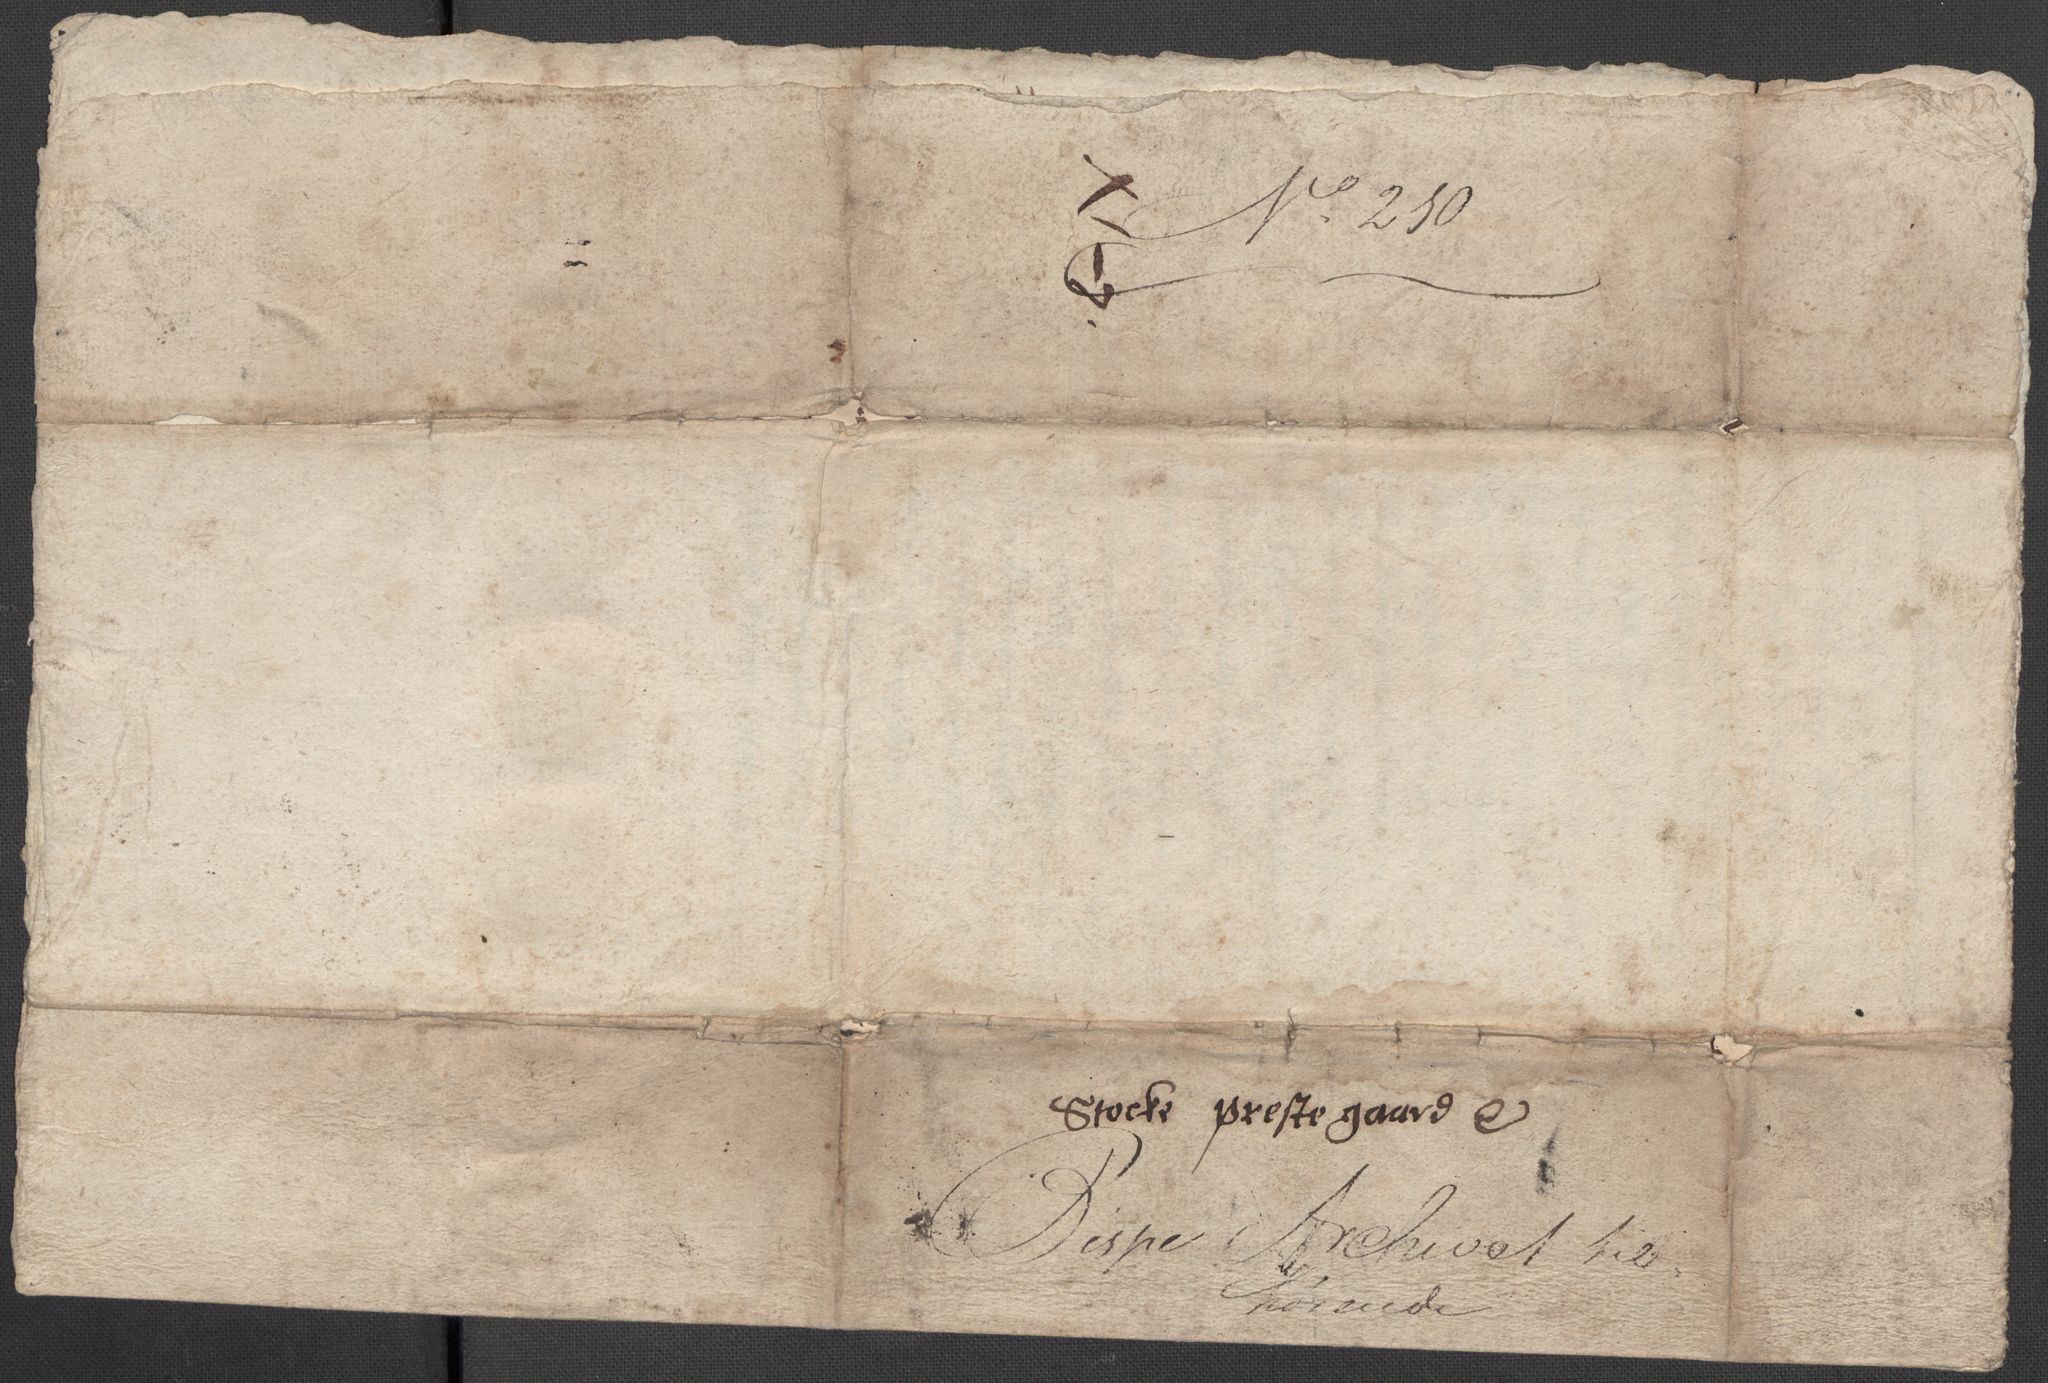 No 210
Stocke prestegaard
Bispe Archivet til
hørende